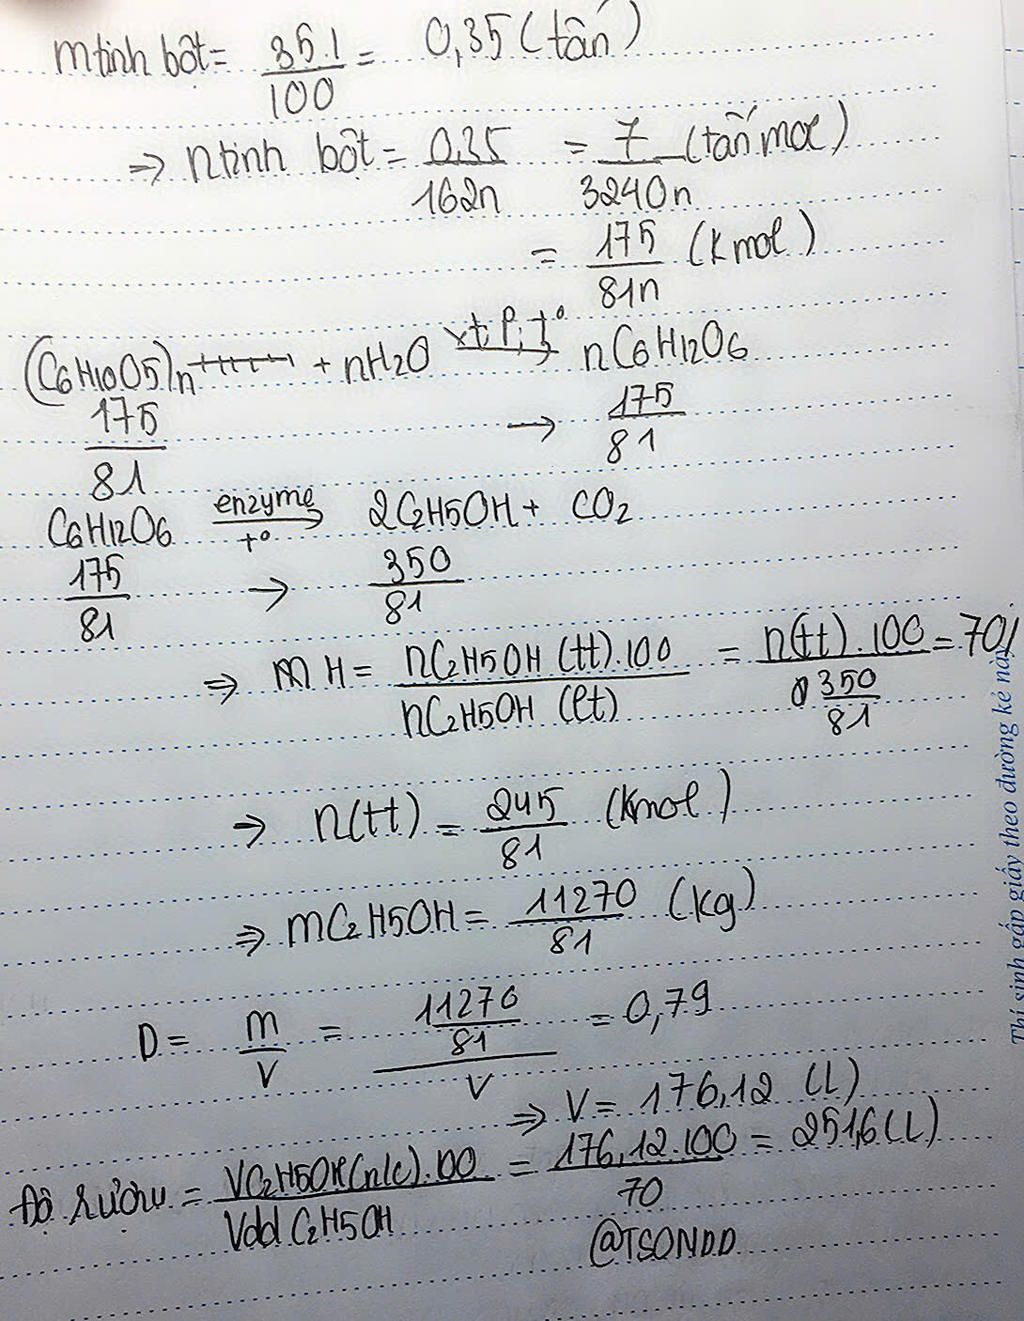 m tinh bột = 35.1/100 = 0,35 (tấn)
=> n tinh bột = 0,35/162n = 7/3240n (tấn mol)
= 175/81n (Kmol)
(C6H10O5)n + nH2O xt, p, t° → nC6H12O6
175/81 → 175/81
C6H12O6 enzyme t° → 2C2H5OH + CO2
175/81 → 350/81
=> m H = nC2H5OH (tt).100/nC2H5OH (lt) = n(tt).100/350/81 = 70%
=> n(tt) = 245/81 (Kmol)
=> mC2H5OH = 11270/81 (kg)
D = m/V = 11270/81/V = 0,79
=> V = 176,12 (L)
Độ rượu = VC2H5OH(n/c).100/Vdd C2H5OH = 176,12.100/70 = 251,6 (L)
@TSONDD
Thí sinh gấp giấy theo đường kẻ này